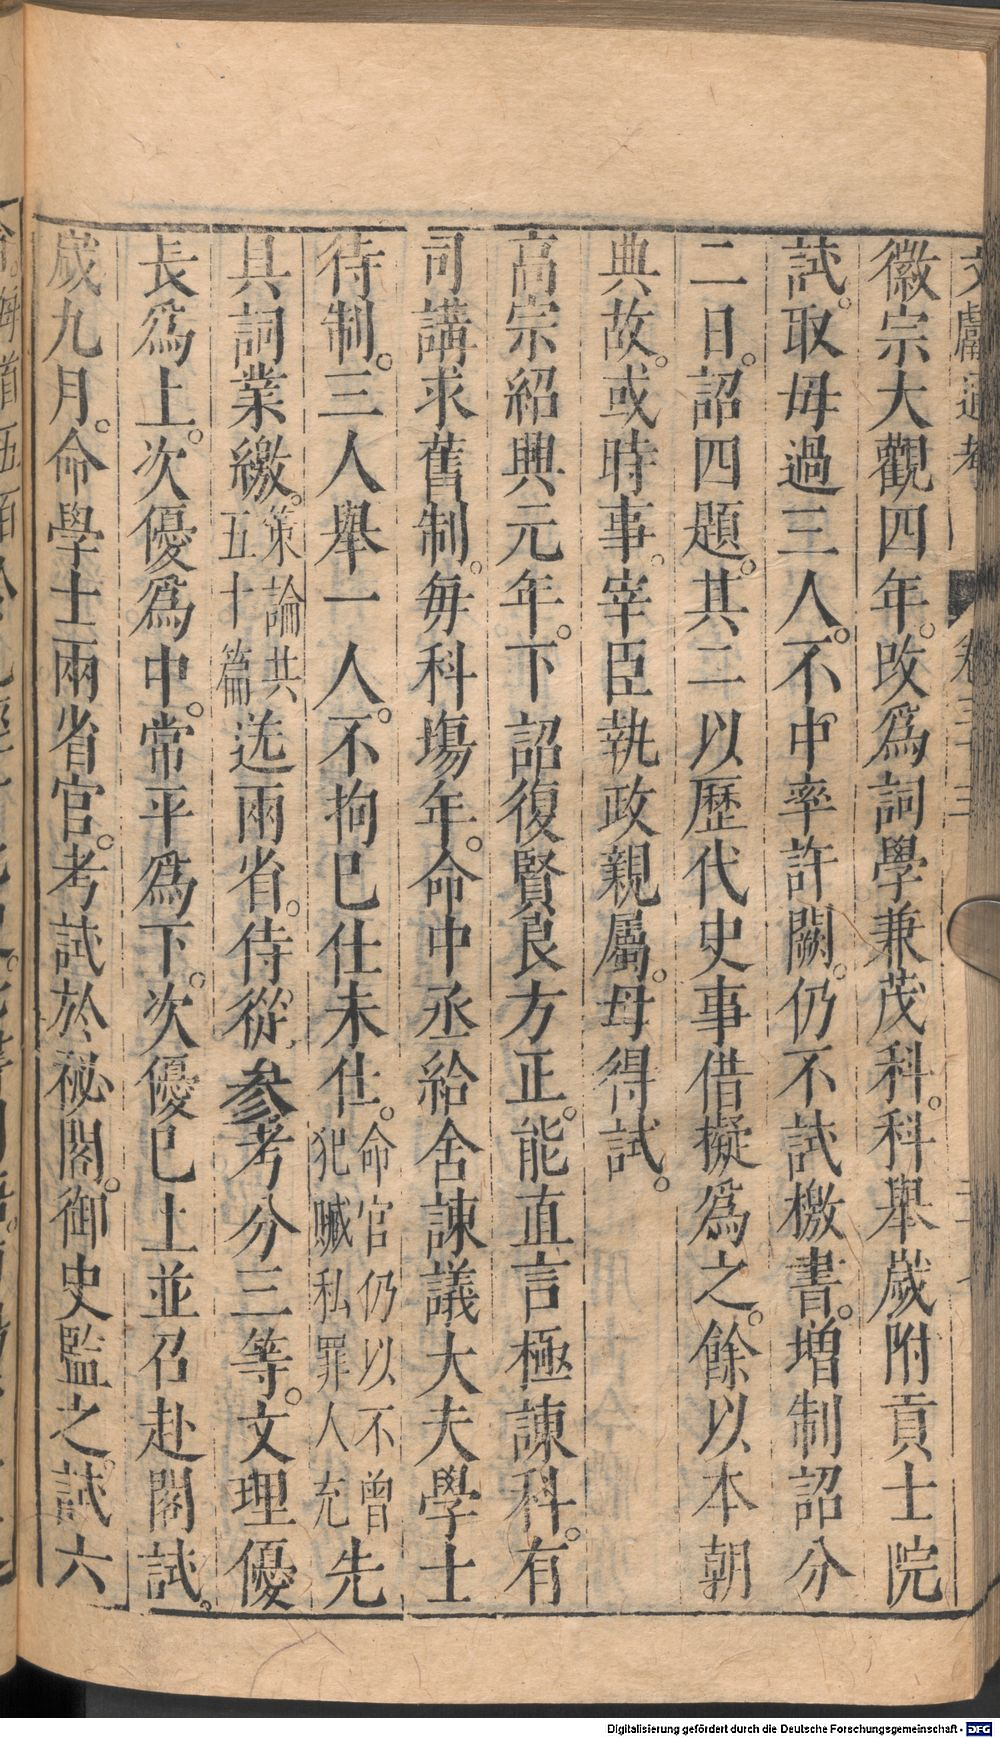 文獻通考 卷三十三
徽宗大觀四年。改爲詞學兼茂科。科舉歲附貢士院
試。取毋過三人。不中率許闕。仍不試檄書。增制詔分
二日。詔四題。其二以歷代史事借擬爲之。餘以本朝
典故。或時事。宰臣執政親屬。毋得試。
高宗紹興元年。下詔復賢良方正。能直言極諫科。有
司講求舊制。每科塲年。命中丞給舍諫議大夫學士
待制。三人舉一人。不拘已仕未仕。命官仍以不曾犯贓私罪人充先
具詞業繳。策論共五十篇送兩省。侍從參考分三等。文理優
長爲上。次優爲中。常平爲下。次優已上並召赴閣試。
歲九月。命學士兩省官。考試於祕閣。御史監之。試六
Digitalisierung gefördert durch die Deutsche Forschungsgemeinschaft - DFG